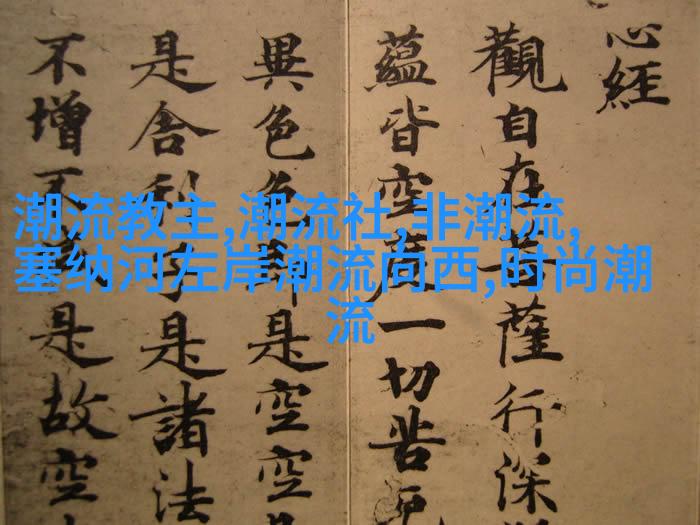 心經
觀自在菩薩行深
蘊皆空度一切苦厄
異色色即是空空
是舍利子是諸法
不增不是故空
潮流教主,潮流社,非潮流,
塞纳河左岸潮流向西,时尚潮
流